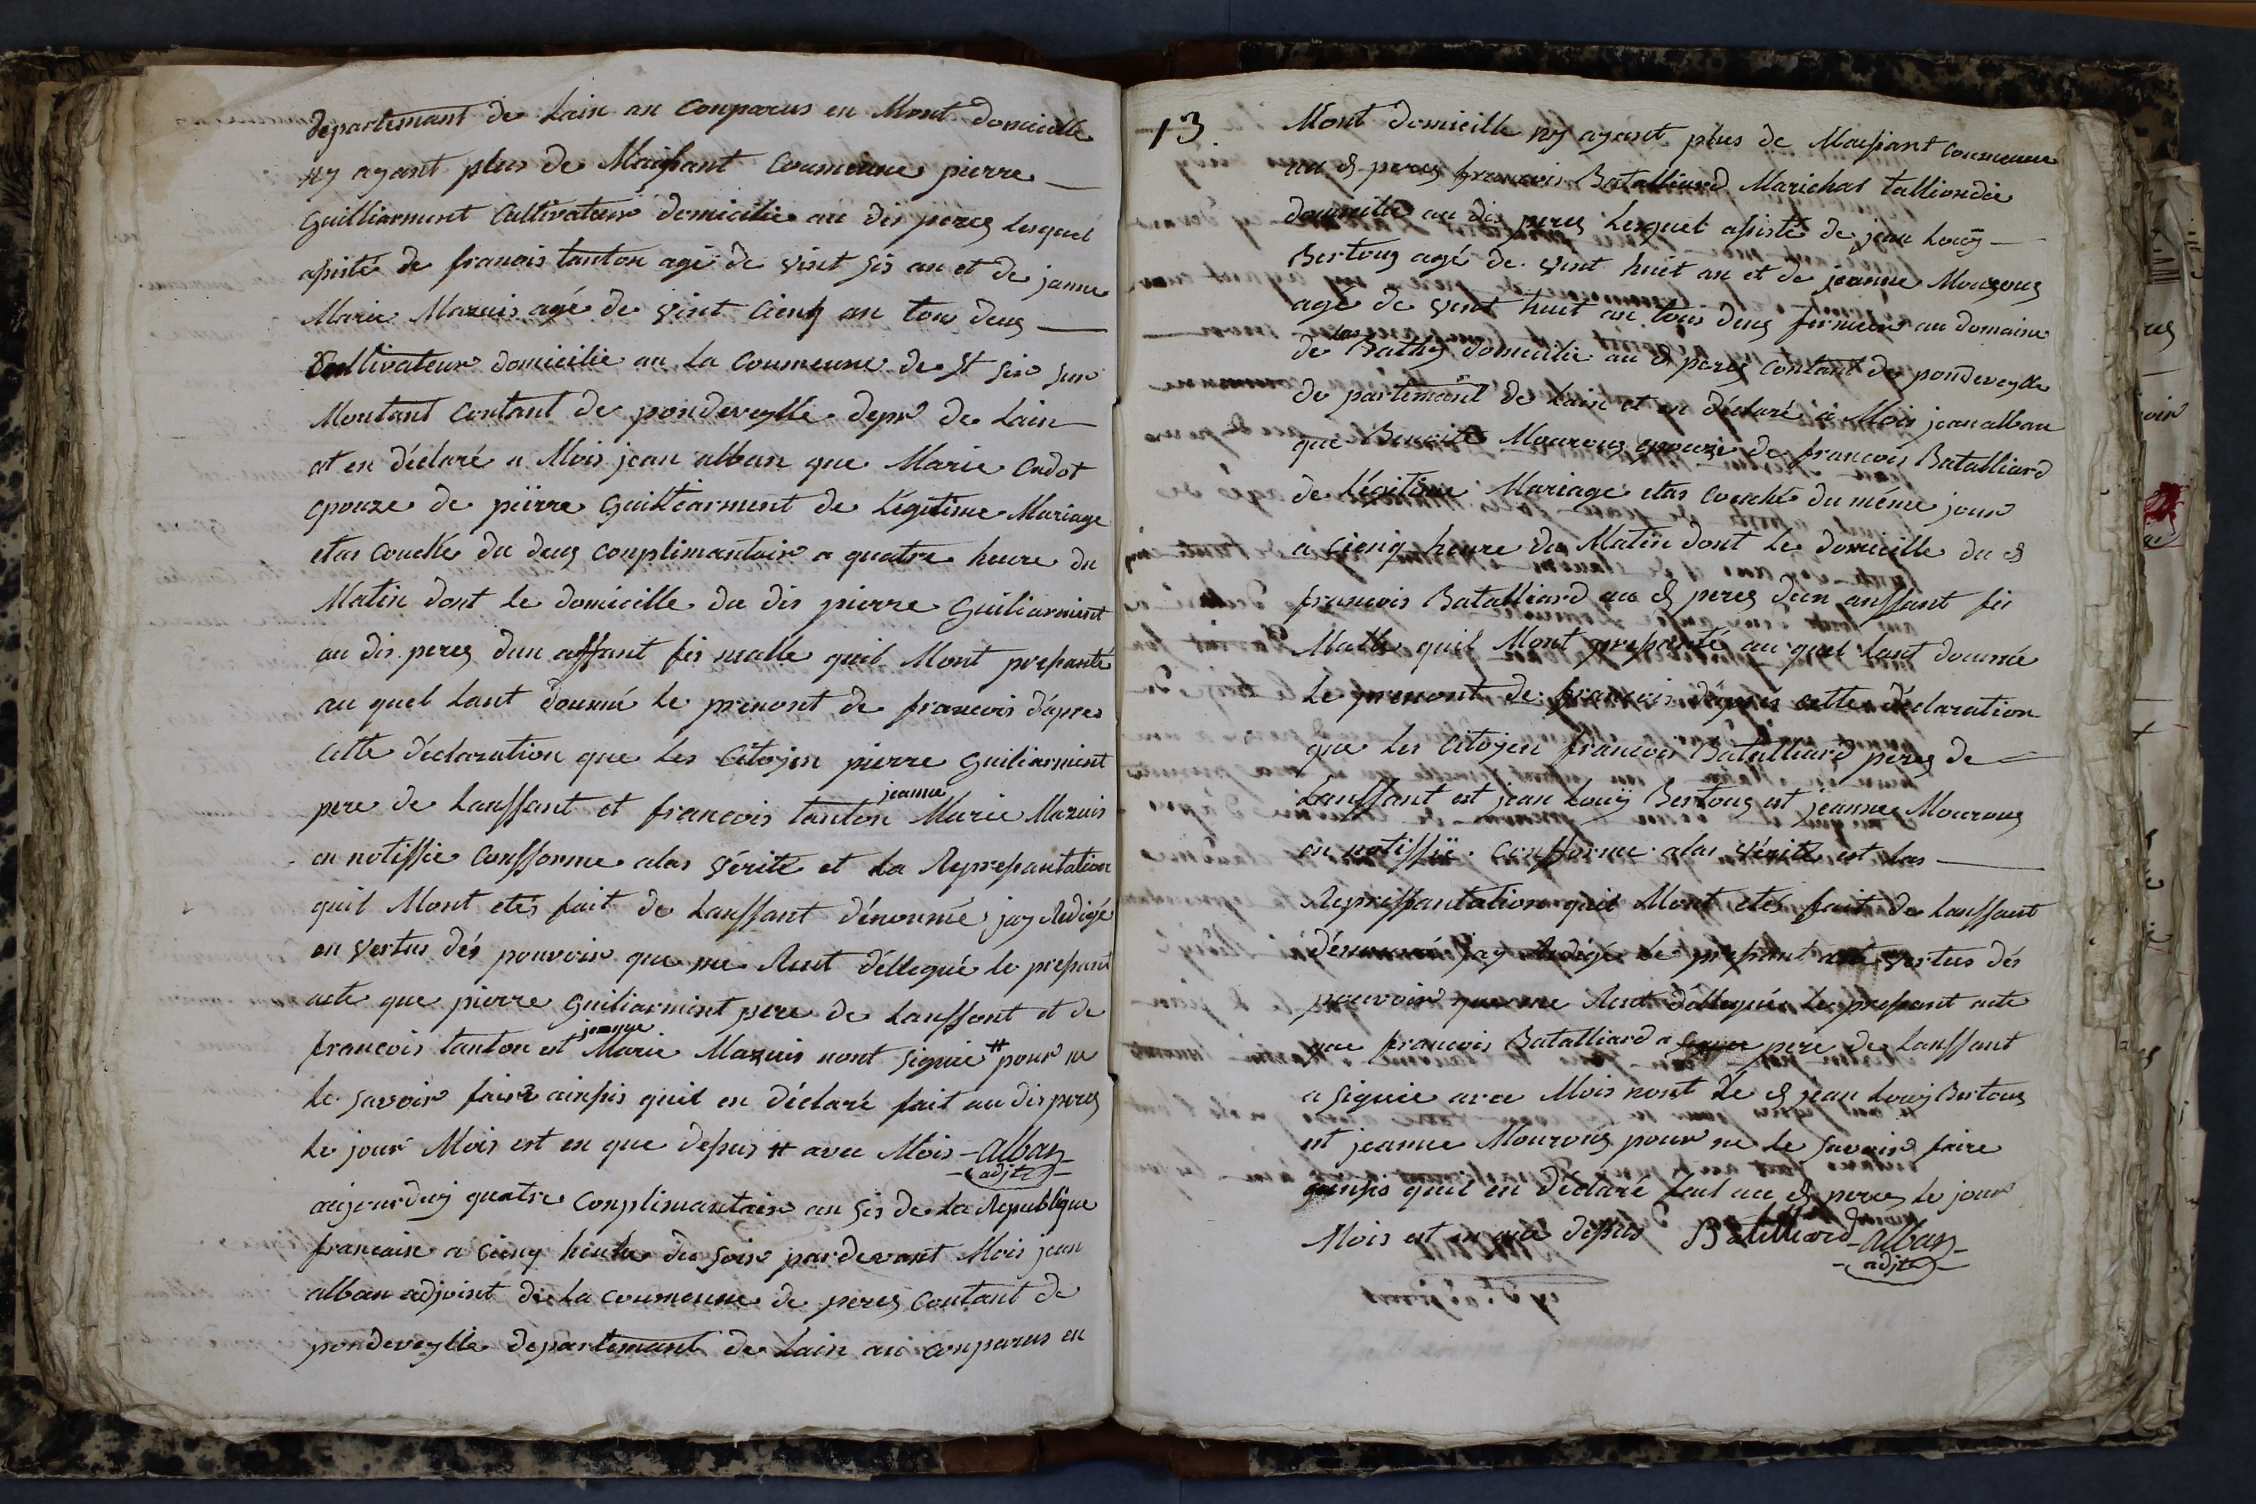 departemant de Lain an Conparus en Mont domicille
ny ayant plus de Maissant Coumeune pierre
Guilliarment Cultivateur domicilie au dis perez Lesquel
asisté de franois tanton agé de vint sis an et de janne
Marie Mazuis agé de vint Cienq an tous deuz
Cultivateur domicilie an La Coumeune de st sir sur
Montant Contant de pondeveylle depr de Lain
et en déclaré a Mois jean alban que Marie Cadot
epouze de piërre Guilliarment de Légitime Mariage
etas Couché du deuz Conplimantair a quatre heure du
Matin dont Le domicille du dis pierre Guiliarment
au dis perez dun anffant fis malle quil Mont presanté
au quel Lant doumé Le prenont de francois dápres
cette déclaration que Les Citoyen pierre Guiliarment
pere de Lanffant et francois tanton jeanne Marie Mazuis
en notiffie Confforme alas vérite et La Represantation
quil Mont etés fait de Lanffant dénoumée jay Redigé
en vertus dés pouvoir que me Sunt déllequé le presant
acte que pierre Guiliarment pere de Lanffant et de
francois tanton et jeanne Marie Mazuis nont signie # pour ne
Le savoir faire ainsis quil en déclaré fait au dis perez
Le jour Mois est en que desus # avec Mois - Alban
adjt
aujourduy quatre Conplimantair an sis de La Republique
francaise a Cienq heure du soir pardevant Mois jean
alban adjoint de La Coumeune de perez Contant de
pondeveylle departemant de Lain an Conparus en
13
Mont domicille ny ayant plus de Maissant Coumeune
au d perez francois Batalliard Marichal talliandie
doumicilie au dis perez Lesquel asisté de jean Louÿ
Bertouz agé de vint huit an et de jeanne Mourouz
agé de vint huit an tous deuz fermier au domaine
de las Bathy domicilie au d perez Contant de pondeveylle
departemant de Lain et en déclaré a Mois jean alban
que Benoite Mourouz epouze de francois Batalliard
de Légitime Mariage etas Couché du même jour
a Cienq heure du Matin dont Le domicille du d
francois Batalliard au d perez dun anffant fis
Malle quil Mont presanté au quel Lant doumée
Le prenont de francois dáprés cette déclaration
que Les Citoyen francois Batalliard perez de
Lanffant est jean Louÿ Bertouz est jeanne Mourouz
on notiffie Confforme alas vérite est las
Represantation quil Mont etés fait de Lanffant
dénoumé jay Redigé Le presant vertus dés
pouvoir que me Sunt déllequé Le presant acte
que francois Batalliard a pere de Lanffant
a signie avec Mois nont Lé d jean Louÿ Bertouz
est jeanne Mourouz pour ne Le savoir faire
ainsis quil en déclaré fait au d perez Le jour
Mois est en que desus Batalliard - Alban
adjt